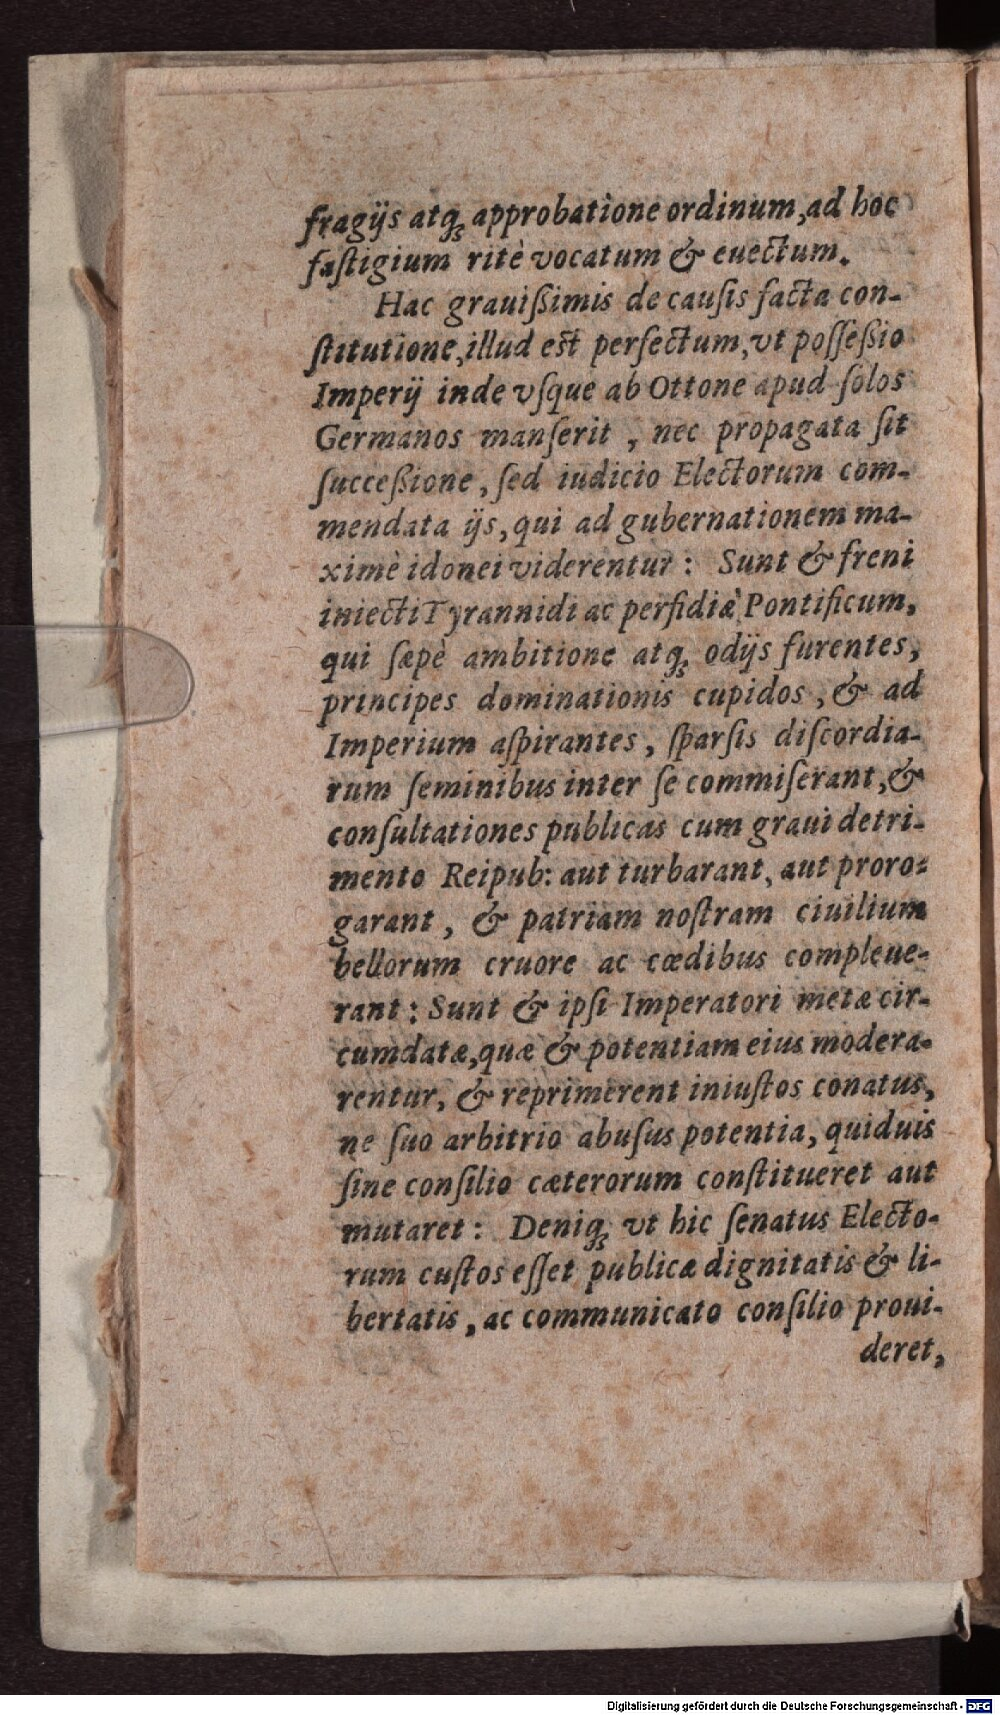 fragijs atq́ꝫ approbatione ordinum, ad hoc
faſtigium ritè vocatum & euectum.
Hac grauiſſimis de cauſis facta con-
ſtitutione, illud eſt perfectum, vt poſſeßio
Imperij inde vſque ab Ottone apud ſolos
Germanos manſerit, nec propagata ſit
ſucceßione, ſed iudicio Electorum com-
mendata ijs, qui ad gubernationem ma-
ximè idonei viderentur: Sunt & freni
iniecti Tyrannidi ac perfidiæ Pontificum,
qui ſæpè ambitione atq́ꝫ odijs furentes,
principes dominationis cupidos, & ad
Imperium aſpirantes, ſparſis diſcordia-
rum ſeminibus inter ſe commiſerant, &
conſultationes publicas cum graui detri-
mento Reipub: aut turbarant, aut proro-
garant, & patriam noſtram ciuilium
bellorum cruore ac cœdibus compleue-
rant: Sunt & ipſi Imperatori metæ cir-
cumdatæ, quæ & potentiam eius modera-
rentur, & reprimerent iniuſtos conatus,
ne ſuo arbitrio abuſus potentia, quiduis
ſine conſilio cæterorum conſtitueret aut
mutaret: Deniq́ꝫ vt hic ſenatus Electo-
rum cuſtos eſſet publicæ dignitatis & li-
bertatis, ac communicato conſilio proui-
deret,
Digitalisierung gefördert durch die Deutsche Forschungsgemeinschaft - DFG